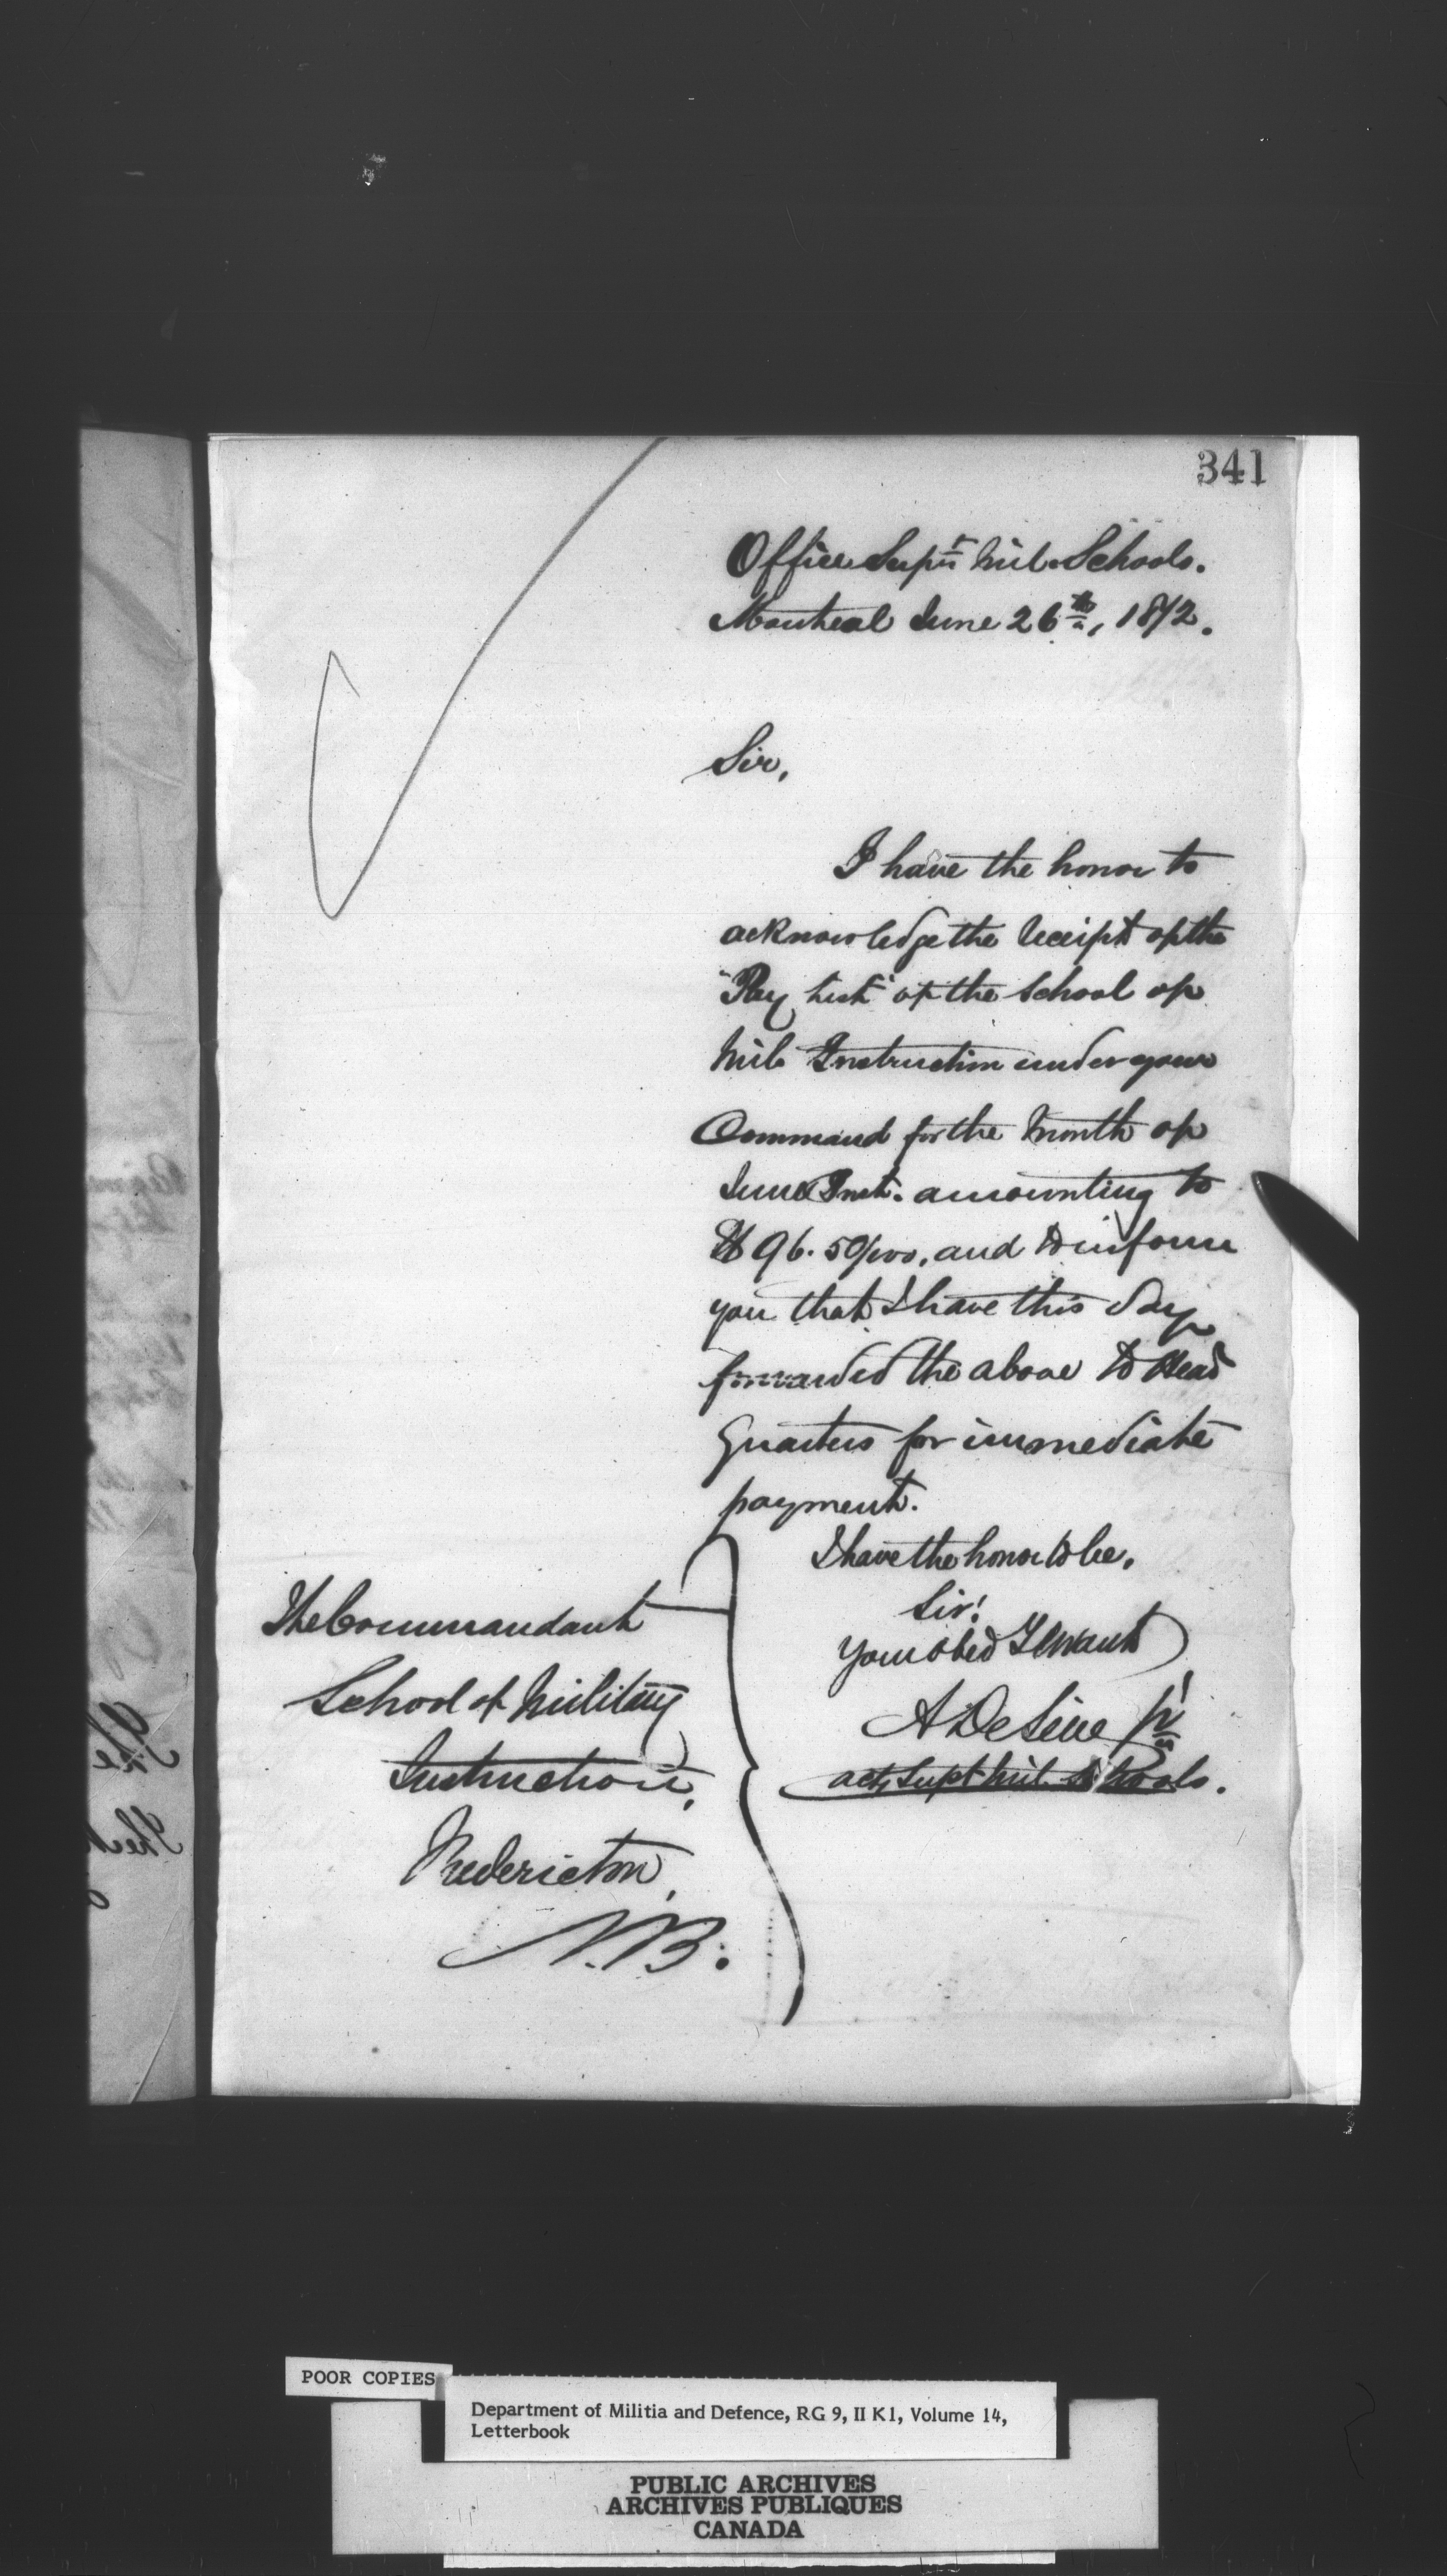 341
Office Supt Mil. Schools.
Montreal June 26th, 1872.
Sir,
I have the honor to
acknowledge the receipt of the
"Pay List" of the School of
Mil Instruction under your
Command for the Month of
June Inst. amounting to
$96.50/100, and to inform
you that I have this day
forwarded the above to Head
Quarters for immediate
payment.
I have the honor to be,
Sir!
Your Obed Servant
A DeLi
actg Supt Mil. Schools.
The Commandant
School of Military
Instruction,
Fredericton,
N.B.
POOR COPIES
Department of Militia and Defence, RG 9, II K1, Volume 14,
Letterbook
PUBLIC ARCHIVES
ARCHIVES PUBLIQUES
CANADA